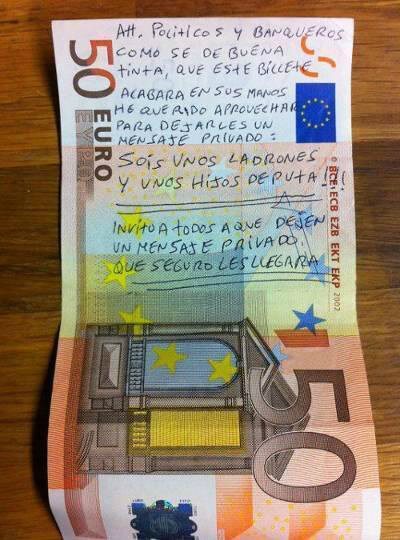 Att. POLITICOS Y BANQUEROS
COMO SE DE BUENA
TINTA, QUE ESTE BILLETE
ACABARA EN SUS MANOS
HE QUERIDO APROVECHAR
PARA DEJARLES UN
MENSAJE PRIVADO:
SOIS UNOS LADRONES
Y UNOS HIJOS DE PUTA!!!
INVITO A TODOS A QUE DEJEN
UN MENSAJE PRIVADO,
QUE SEGURO LES LLEGARA
50 EURO
ΕΥΡΩ
© BCE ECB EZB EKT EKP 2002
50